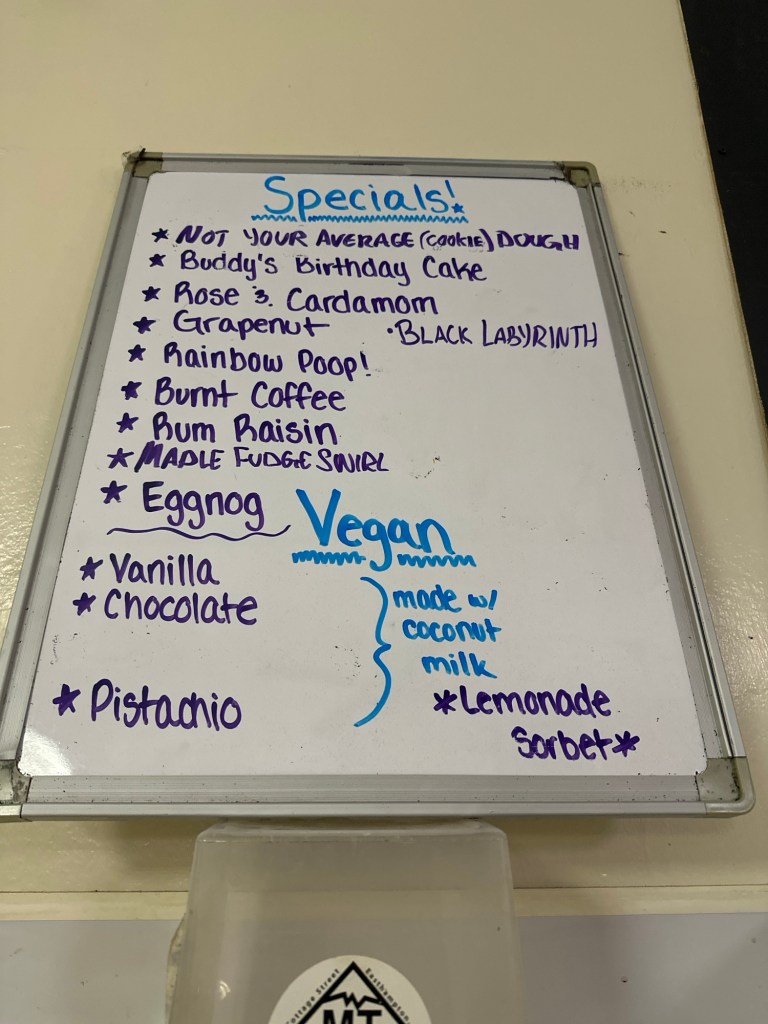 Specials!
* NOT YOUR AVERAGE (COOKIE) DOUGH
* Buddy's Birthday Cake
* Rose & Cardamom
* Grapenut
• BLACK LABYRINTH
* Rainbow Poop!
* Burnt Coffee
* Rum Raisin
* MAPLE FUDGE SWIRL
* Eggnog
Vegan
* Vanilla
* Chocolate
* Pistachio
made w/
coconut
milk
*Lemonade
Sorbet*
Cottage Street Easthampton
MT